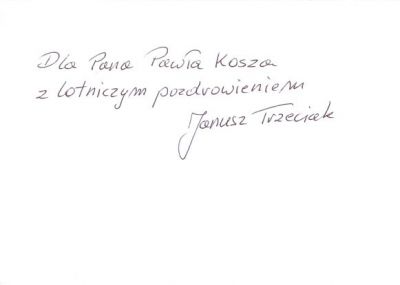 Dla Pana Pawła Kosza
z lotniczym pozdrowieniem
Janusz Trzeciak